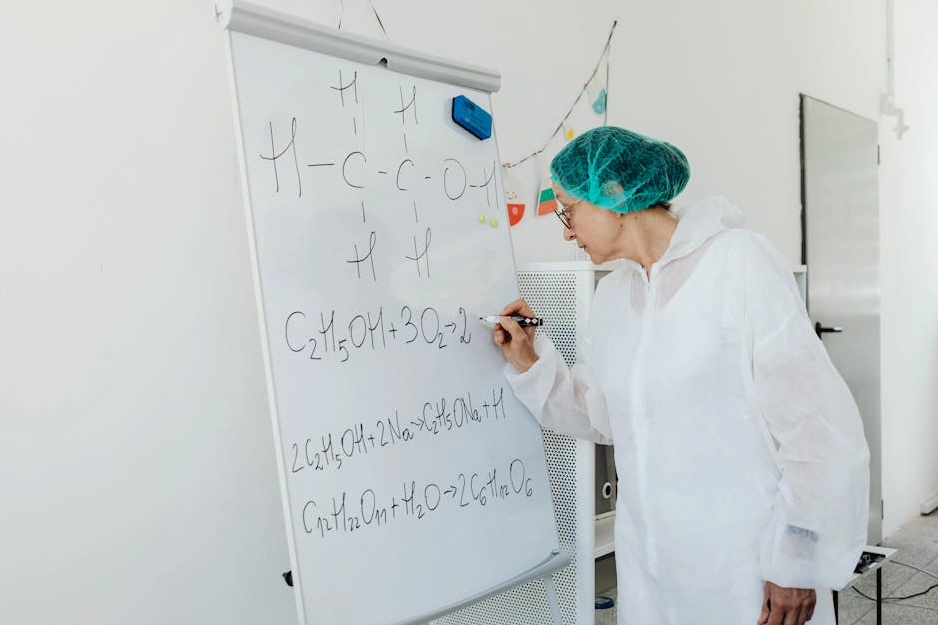 H H
H-C-C-O-H
H H
C₂H₅OH+3O₂→2
2C₂H₅OH+2Na→C₂H₅ONa+H
C₁₂H₂₂O₁₁+H₂O→2C₆H₁₂O₆